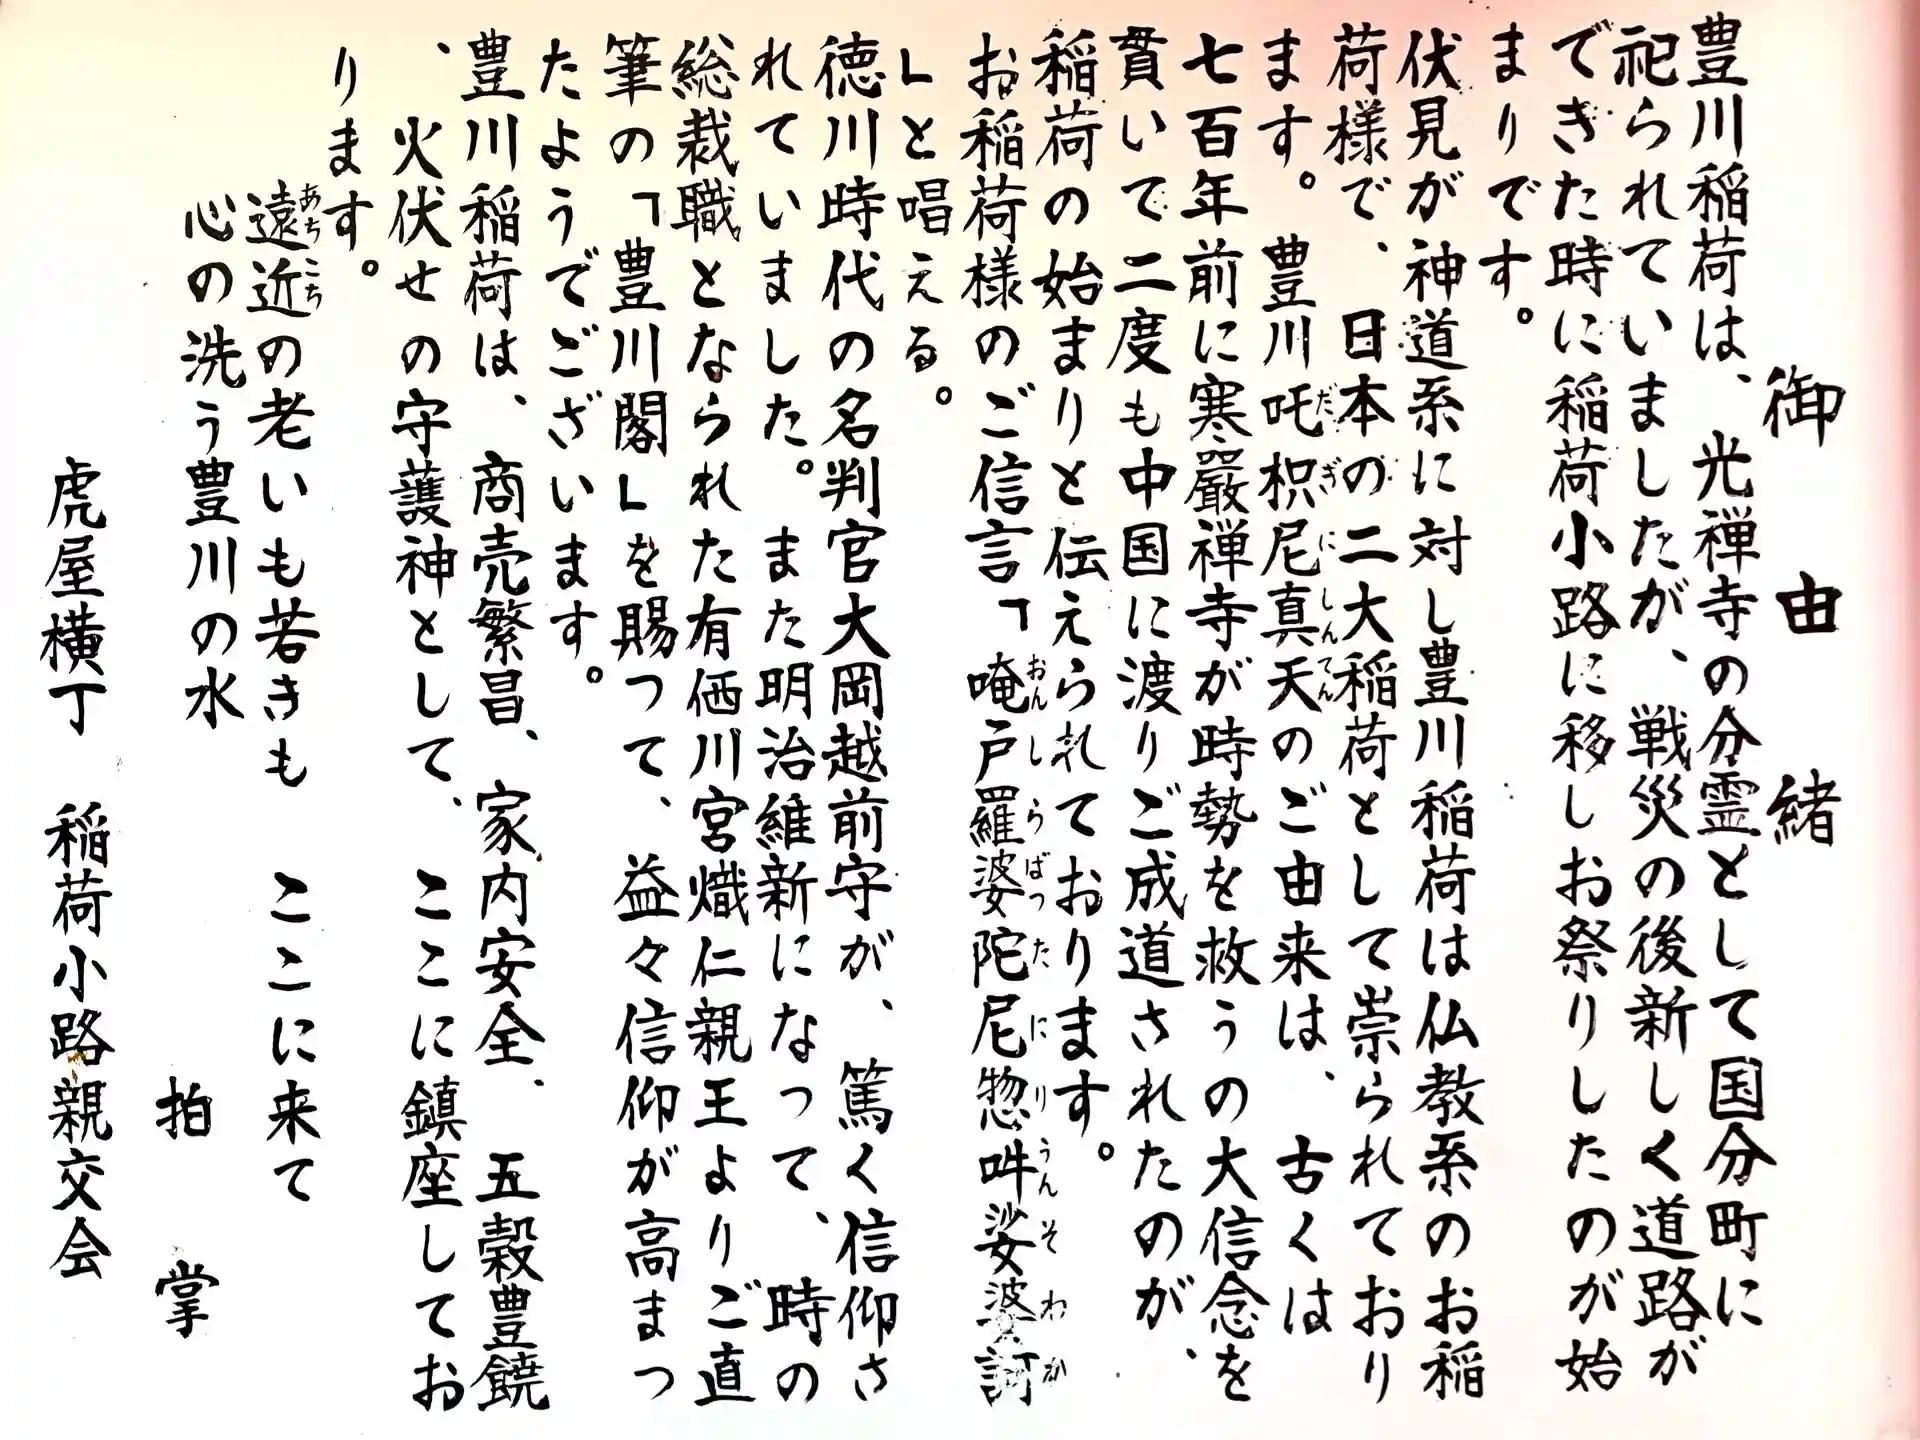 御由緒
豊川稲荷は、光禅寺の分霊として国分町に
祀られていましたが、戦災の後新しく道路が
できた時に稲荷小路に移しお祭りしたのが始
まりです。
伏見が神道系に対し豊川稲荷は仏教系のお稲
荷様で、日本の二大稲荷として崇られており
ます。豊川吒枳尼真天のご由来は、古くは
だぎにしんてん
七百年前に寒巌禅寺が時勢を救うの大信念を
貫いて二度も中国に渡りご成道されたのが、
稲荷の始まりと伝えられております。
お稲荷様のご信言「唵戸羅婆陀尼惣吽娑婆訶
おんしらばったにりうんそわか
」と唱える。
徳川時代の名判官大岡越前守が、篤く信仰さ
れていました。また明治維新になって、時の
総裁職となられた有栖川宮熾仁親王よりご直
筆の「豊川閣」を賜って、益々信仰が高まっ
たようでございます。
豊川稲荷は、商売繁昌、家内安全、五穀豊饒
、火伏せの守護神として、ここに鎮座してお
ります。
遠近の老いも若きも ここに来て
あちこち
心の洗う豊川の水
拍掌
虎屋横丁 稲荷小路親交会